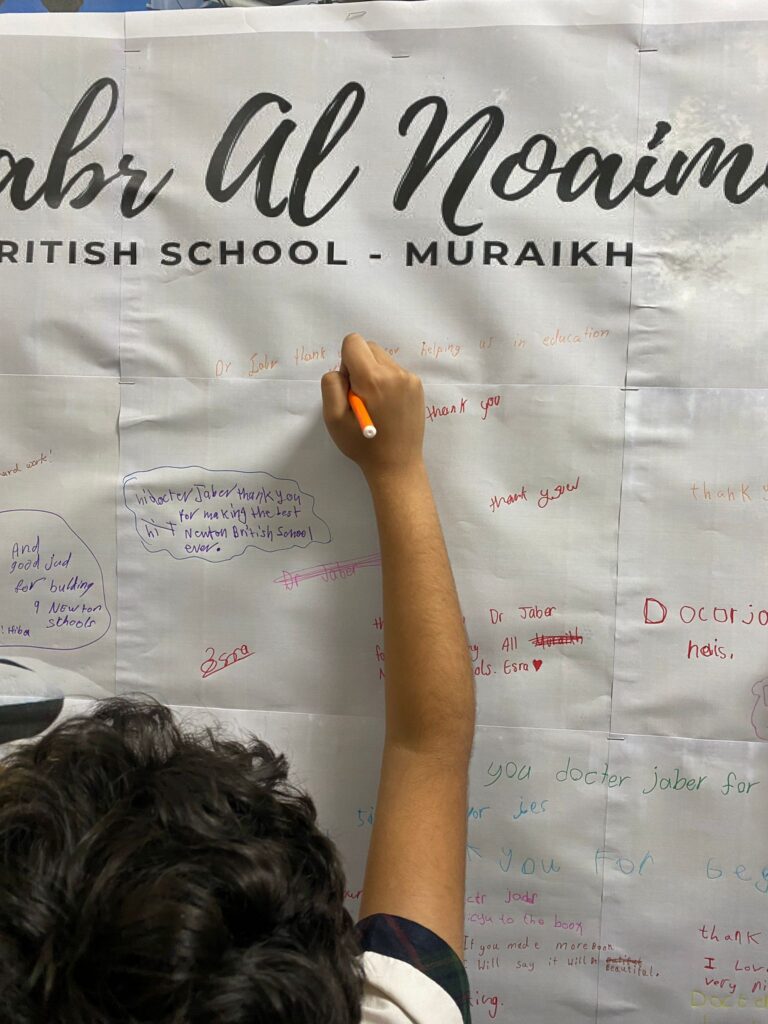 abr Al Noaim
RITISH SCHOOL - MURAIKH
Dr Jabr thank for helping us in education
thank you
ard work!
hi docter Jaber thank you
for making the best
hi I Newton British School
ever.
thank you
thank
And
good jud
for bulding
9 Newton
schools
! Hiba
Dr Jaber
Esra
Dr Jaber
All Muraikh
ols. Esra♥
Docorja
heis.
you docter jaber for
or jes
you For
jabr
to the book
If you mede more Boon
I Will say it will
beautiful.
ting.
thank
I Lov
very ni
Docte